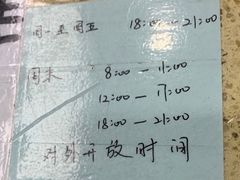 周一至周五 18:00 — 21:00
周末 8:00 — 11:00
12:00 — 17:00
18:00 — 21:00
对外开放时间